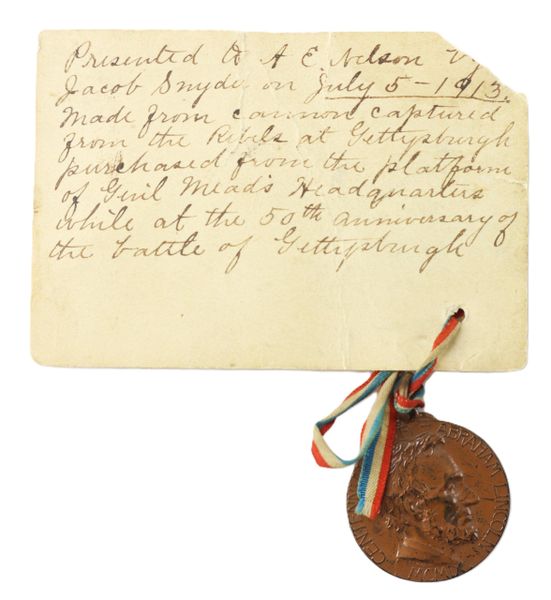 Presented to A E. Nelson By
Jacob Snyder on July 5-1913.
Made from cannon captured
from the Rebils at Gettysburgh
purchased from the platform
of Genl Mead's Headquarters
while at the 50th anniversary of
the battle of Gettysburgh
ABRAHAM LINCOLN